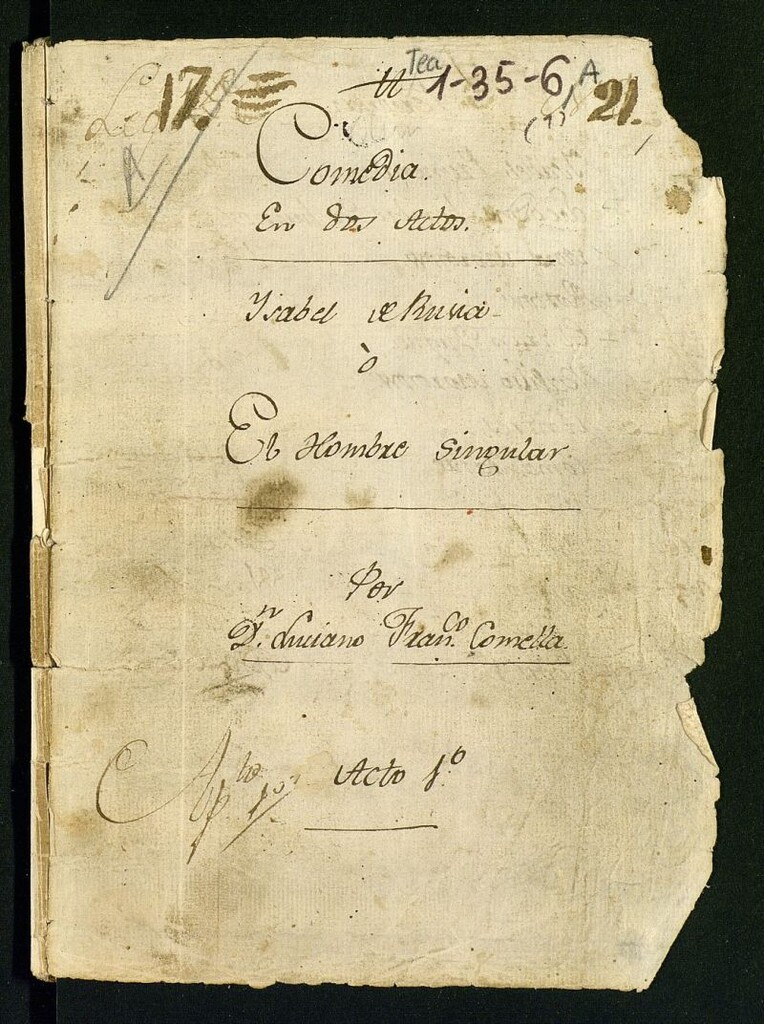 Leg 17. Tea 1-35-6 A
(1) 21.
A
Comedia.
En dos Actos.
Ysabel de Rusia
ò
El Hombre Singular.
Por
Dn. Luciano Franco. Comella.
Apto 1º Acto 1º